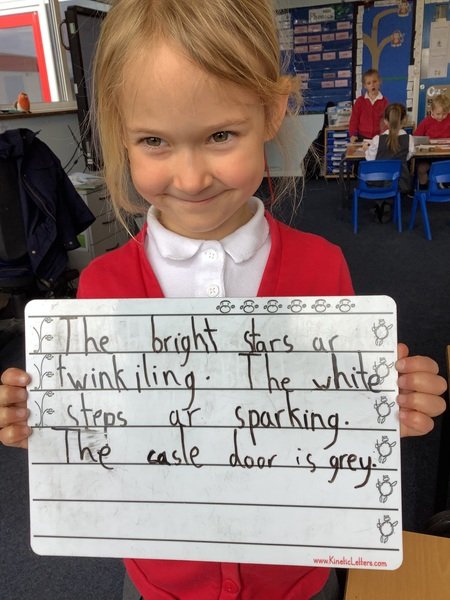 Phonics
The bright stars ar
twinkiling. The white
steps ar sparking.
The casle door is grey.
www.KineticLetters.com